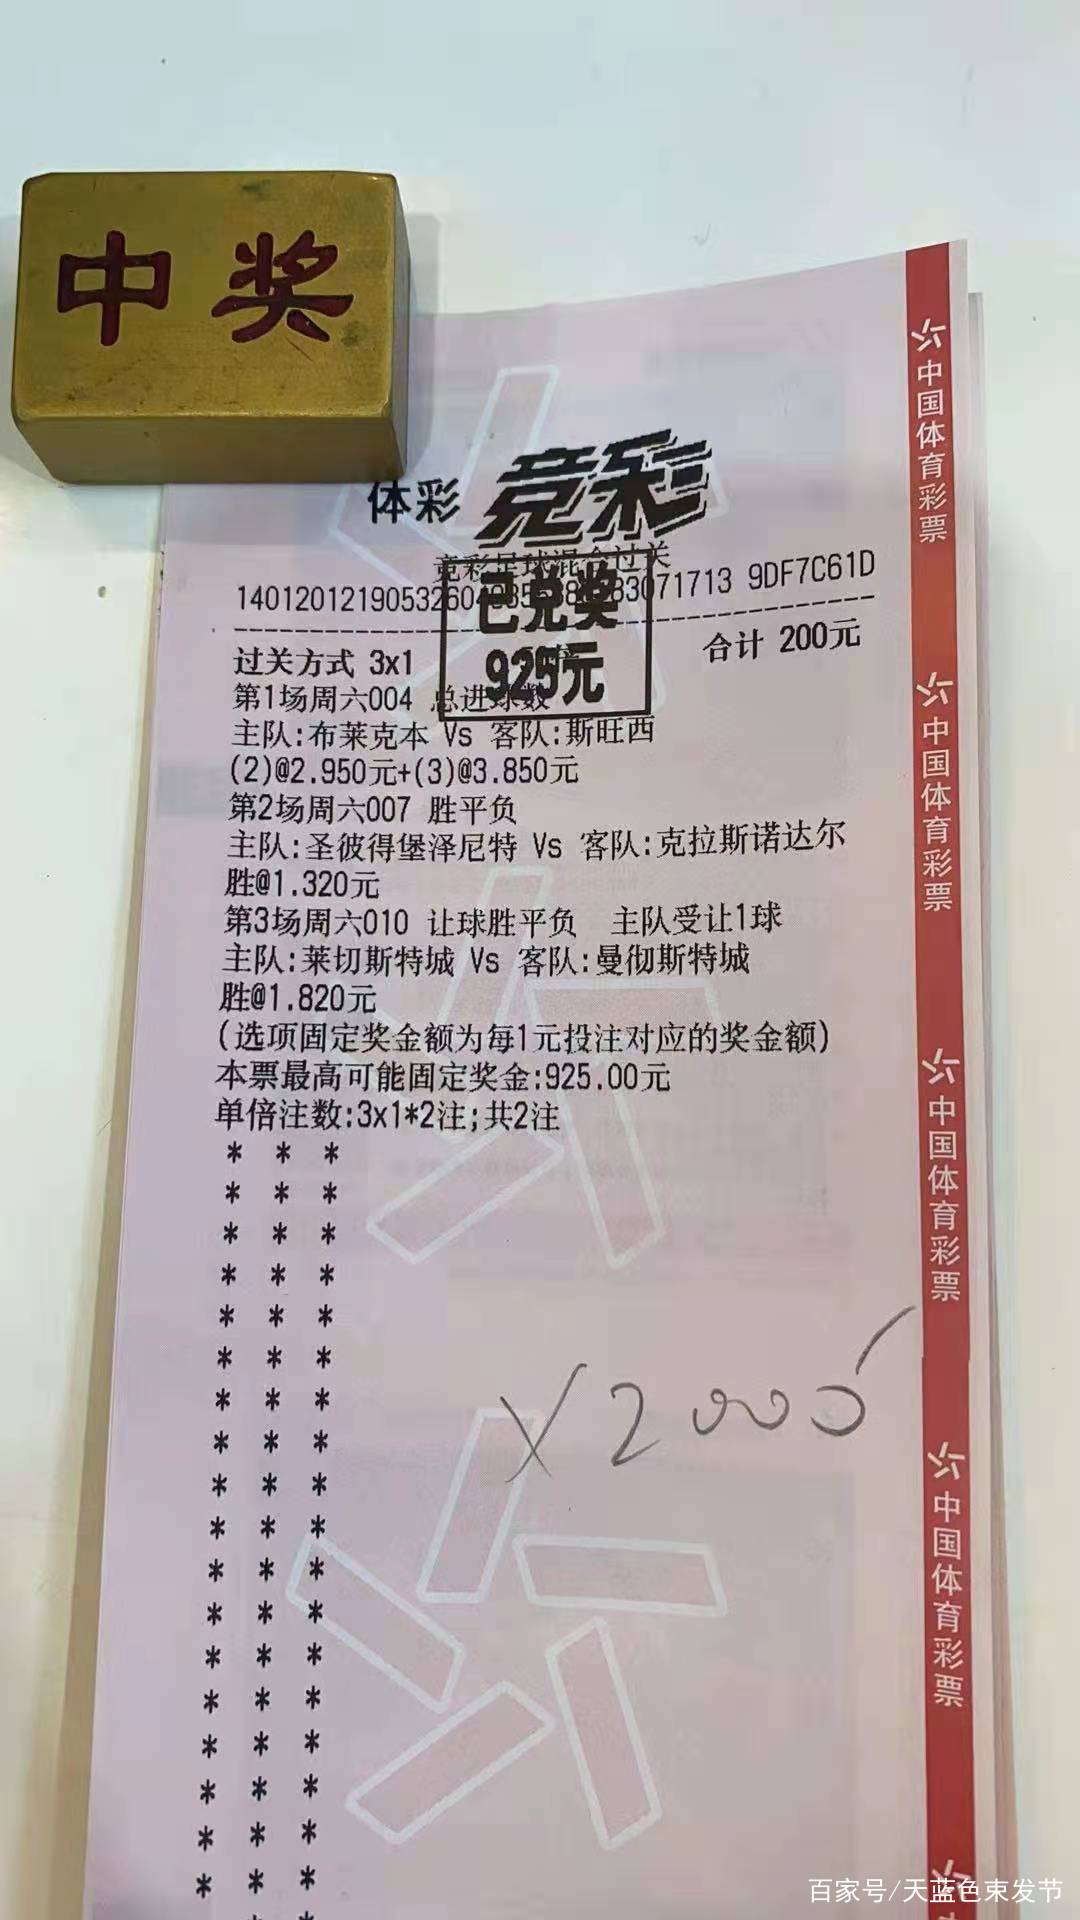 中奖
体彩 竞彩
竞彩足球混合过关
9DF7C61D
已兑奖
925元
过关方式 3x1
合计 200元
第1场周六004 总进球数
主队:布莱克本 Vs 客队:斯旺西
(2)@2.950元+(3)@3.850元
第2场周六007 胜平负
主队:圣彼得堡泽尼特 Vs 客队:克拉斯诺达尔
胜@1.320元
第3场周六010 让球胜平负 主队受让1球
主队:莱切斯特城 Vs 客队:曼彻斯特城
胜@1.820元
(选项固定奖金额为每1元投注对应的奖金额)
本票最高可能固定奖金:925.00元
单倍注数:3x1*2注;共2注
* * *
* * *
* * *
* * *
* * *
* * *
* * *
* * *
* * *
* * *
* * *
* * *
* * *
* * *
* * *
* * *
* * *
* * *
X2000
中国体育彩票
中国体育彩票
中国体育彩票
中国体育彩票
百家号/天蓝色束发节